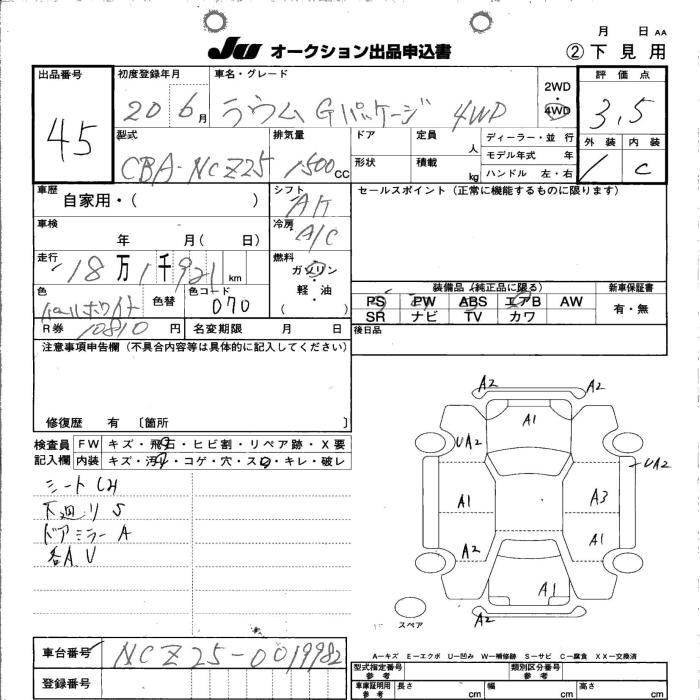 月 日 AA
JU オークション出品申込書
② 下見用
出品番号
45
初度登録年月
20 6月
車名・グレード
ラウム Gパッケージ 4WD
2WD・4WD
評価点
3.5
型式
CBA-NCZ25
排気量
1500cc
ドア
定員
人
ディーラー・並行
モデル年式 年
形状
積載
kg
ハンドル 左・右
外装
内装
C
車歴
自家用・( )
シフト
AT
セールスポイント(正常に機能するものに限ります)
車検
年 月( 日)
冷房
A/C
走行
18万1千921km
燃料
ガソリン・軽油
( )
色
パールホワイト
色替
色コード
070
装備品(純正品に限る)
新車保証書
PS PW ABS エアB AW
SR ナビ TV カワ
有・無
R券 10810円
名変期限 月 日
後日品
注意事項申告欄(不具合内容等は具体的に記入してください)
修復歴 有〔箇所 〕
検査員記入欄
FW キズ・飛石・ヒビ割・リペア跡・X要
内装 キズ・汚れ・コゲ・穴・スレ・キレ・破レ
シート
下廻り S
ドアミラー A
各A.U
A2 A2
A1
UA2
UA2
A1
A3
A2
A1
A1
A2
A2
スペア
A−キズ E−エクボ U−凹み W−補修跡 S−サビ C−腐食 XX−交換済
車台番号
NCZ25-0019982
登録番号
型式指定番号 参考
類別区分番号 参考
車庫証明用 参考
長さ cm
幅 cm
高さ cm